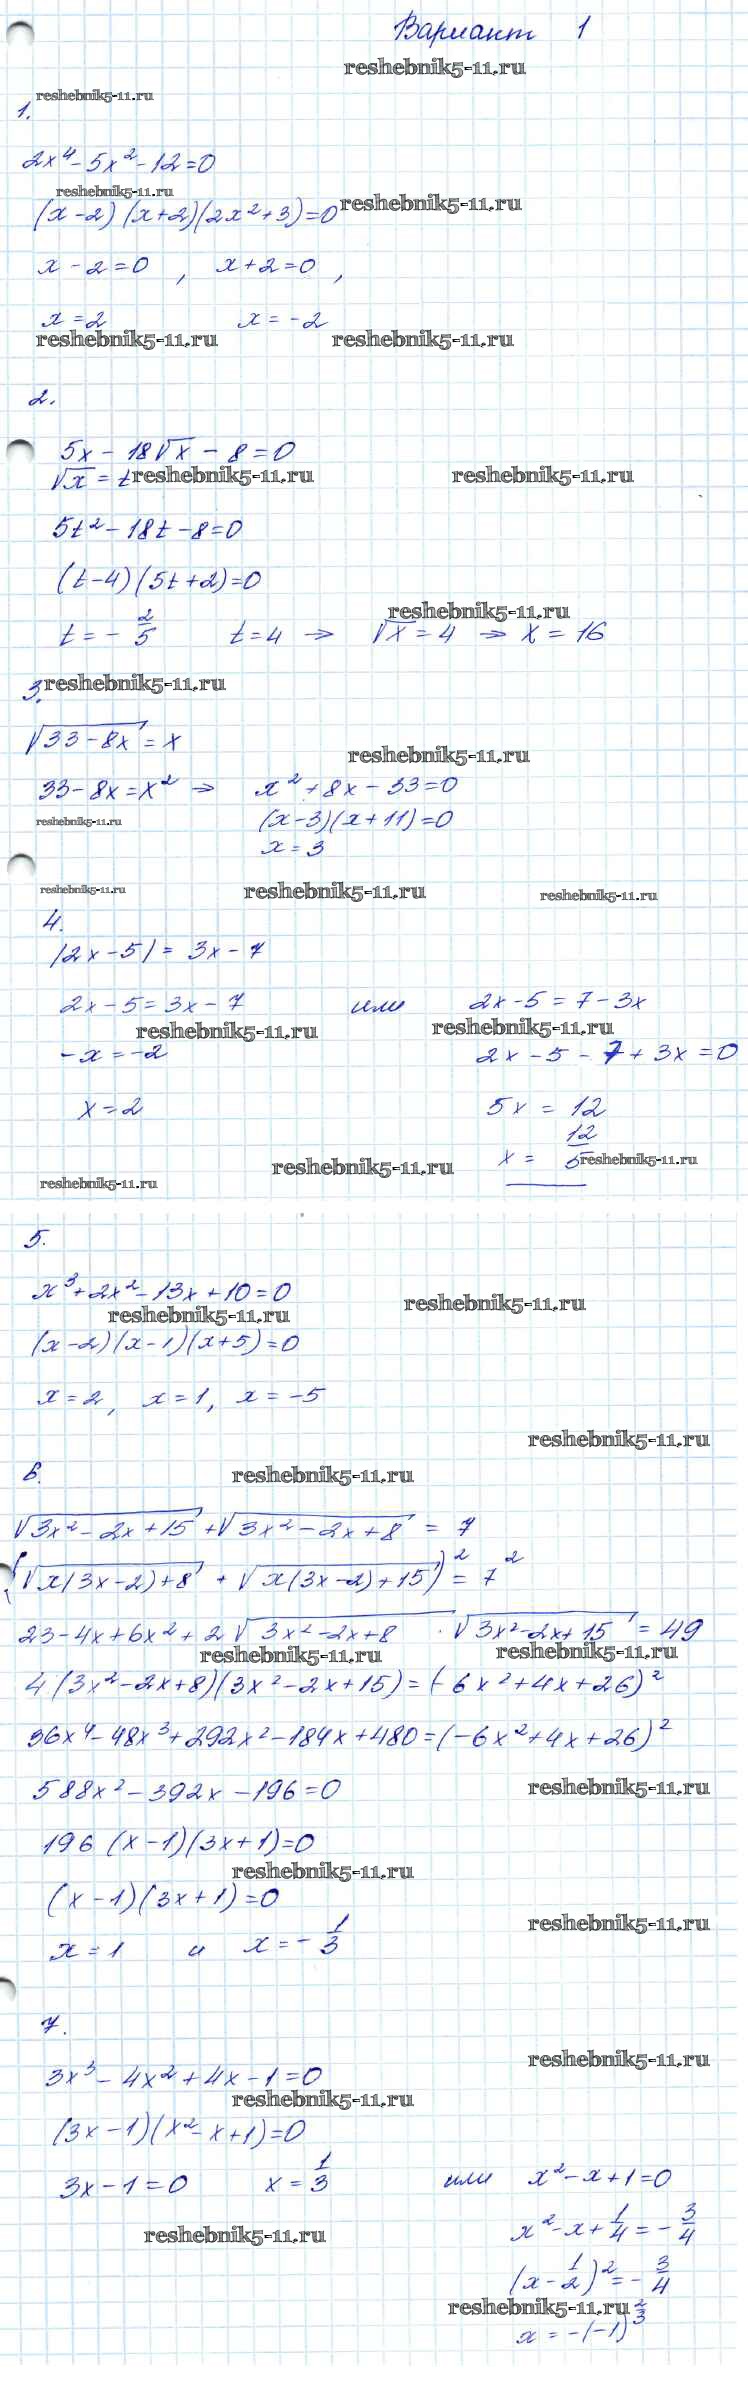 Вариант 1
reshebnik5-11.ru
reshebnik5-11.ru
1.
2x⁴ - 5x² - 12 = 0
reshebnik5-11.ru
(x-2)(x+2)(2x²+3)=0 reshebnik5-11.ru
x-2=0 , x+2=0 ,
x=2 x=-2
reshebnik5-11.ru reshebnik5-11.ru
2.
5x - 18√x - 8 = 0
√x = t reshebnik5-11.ru reshebnik5-11.ru
5t² - 18t - 8 = 0
(t-4)(5t+2)=0
reshebnik5-11.ru
t = -2/5 t=4 ⇒ √x = 4 ⇒ x = 16
3. reshebnik5-11.ru
√(33-8x) = x
reshebnik5-11.ru
33-8x=x² ⇒ x²+8x-33=0
reshebnik5-11.ru (x-3)(x+11)=0
x=3
reshebnik5-11.ru reshebnik5-11.ru reshebnik5-11.ru
4.
|2x-5| = 3x-7
2x-5=3x-7 или 2x-5=7-3x
reshebnik5-11.ru reshebnik5-11.ru
-x=-2 2x-5-7+3x=0
x=2 5x = 12
x = 12/5 reshebnik5-11.ru
reshebnik5-11.ru reshebnik5-11.ru
5.
x³+2x²-13x+10=0
reshebnik5-11.ru reshebnik5-11.ru
(x-2)(x-1)(x+5)=0
x=2, x=1, x=-5
reshebnik5-11.ru
6. reshebnik5-11.ru
√(3x²-2x+15) + √(3x²-2x+8) = 7
(√(x(3x-2)+8) + √(x(3x-2)+15))² = 7²
23-4x+6x²+2√(3x²-2x+8) · √(3x²-2x+15) = 49
reshebnik5-11.ru reshebnik5-11.ru
4(3x²-2x+8)(3x²-2x+15)=(-6x²+4x+26)²
36x⁴-48x³+292x²-184x+480=(-6x²+4x+26)²
588x²-392x-196=0 reshebnik5-11.ru
196(x-1)(3x+1)=0
reshebnik5-11.ru
(x-1)(3x+1)=0
reshebnik5-11.ru
x=1 и x=-1/3
7.
reshebnik5-11.ru
3x³-4x²+4x-1=0
reshebnik5-11.ru
(3x-1)(x²-x+1)=0
3x-1=0 x=1/3 или x²-x+1=0
reshebnik5-11.ru x²-x+1/4=-3/4
(x-1/2)²=-3/4
reshebnik5-11.ru
x=-(-1)^(2/3)